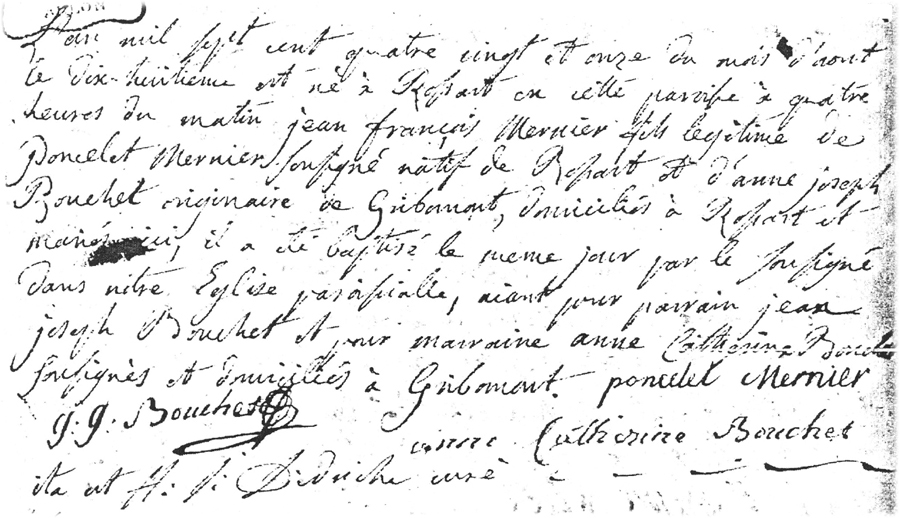 L'an mil sept cent quatre vingt et onze du mois d'aout
le dix-huitieme est né à Rossart en cette paroisse à quatre
heures du matin jean françois Mernier fils legitime de
Poncelet Mernier soussigné natif de Rossart et d'anne joseph
Bouchet originaire de Gribomont, domiciliés à Rossart et
mariés ici, il a été baptisé le meme jour par le soussigné
dans notre Eglise paroissialle, aiant pour parrain jean
joseph Bouchet et pour marraine anne Catherine Bouchet
soussignés et domiciliés à Gribomont. poncelet Mernier
g. g. Bouchet
anne Catherine Bouchet
ita est H: j: Didriche curé